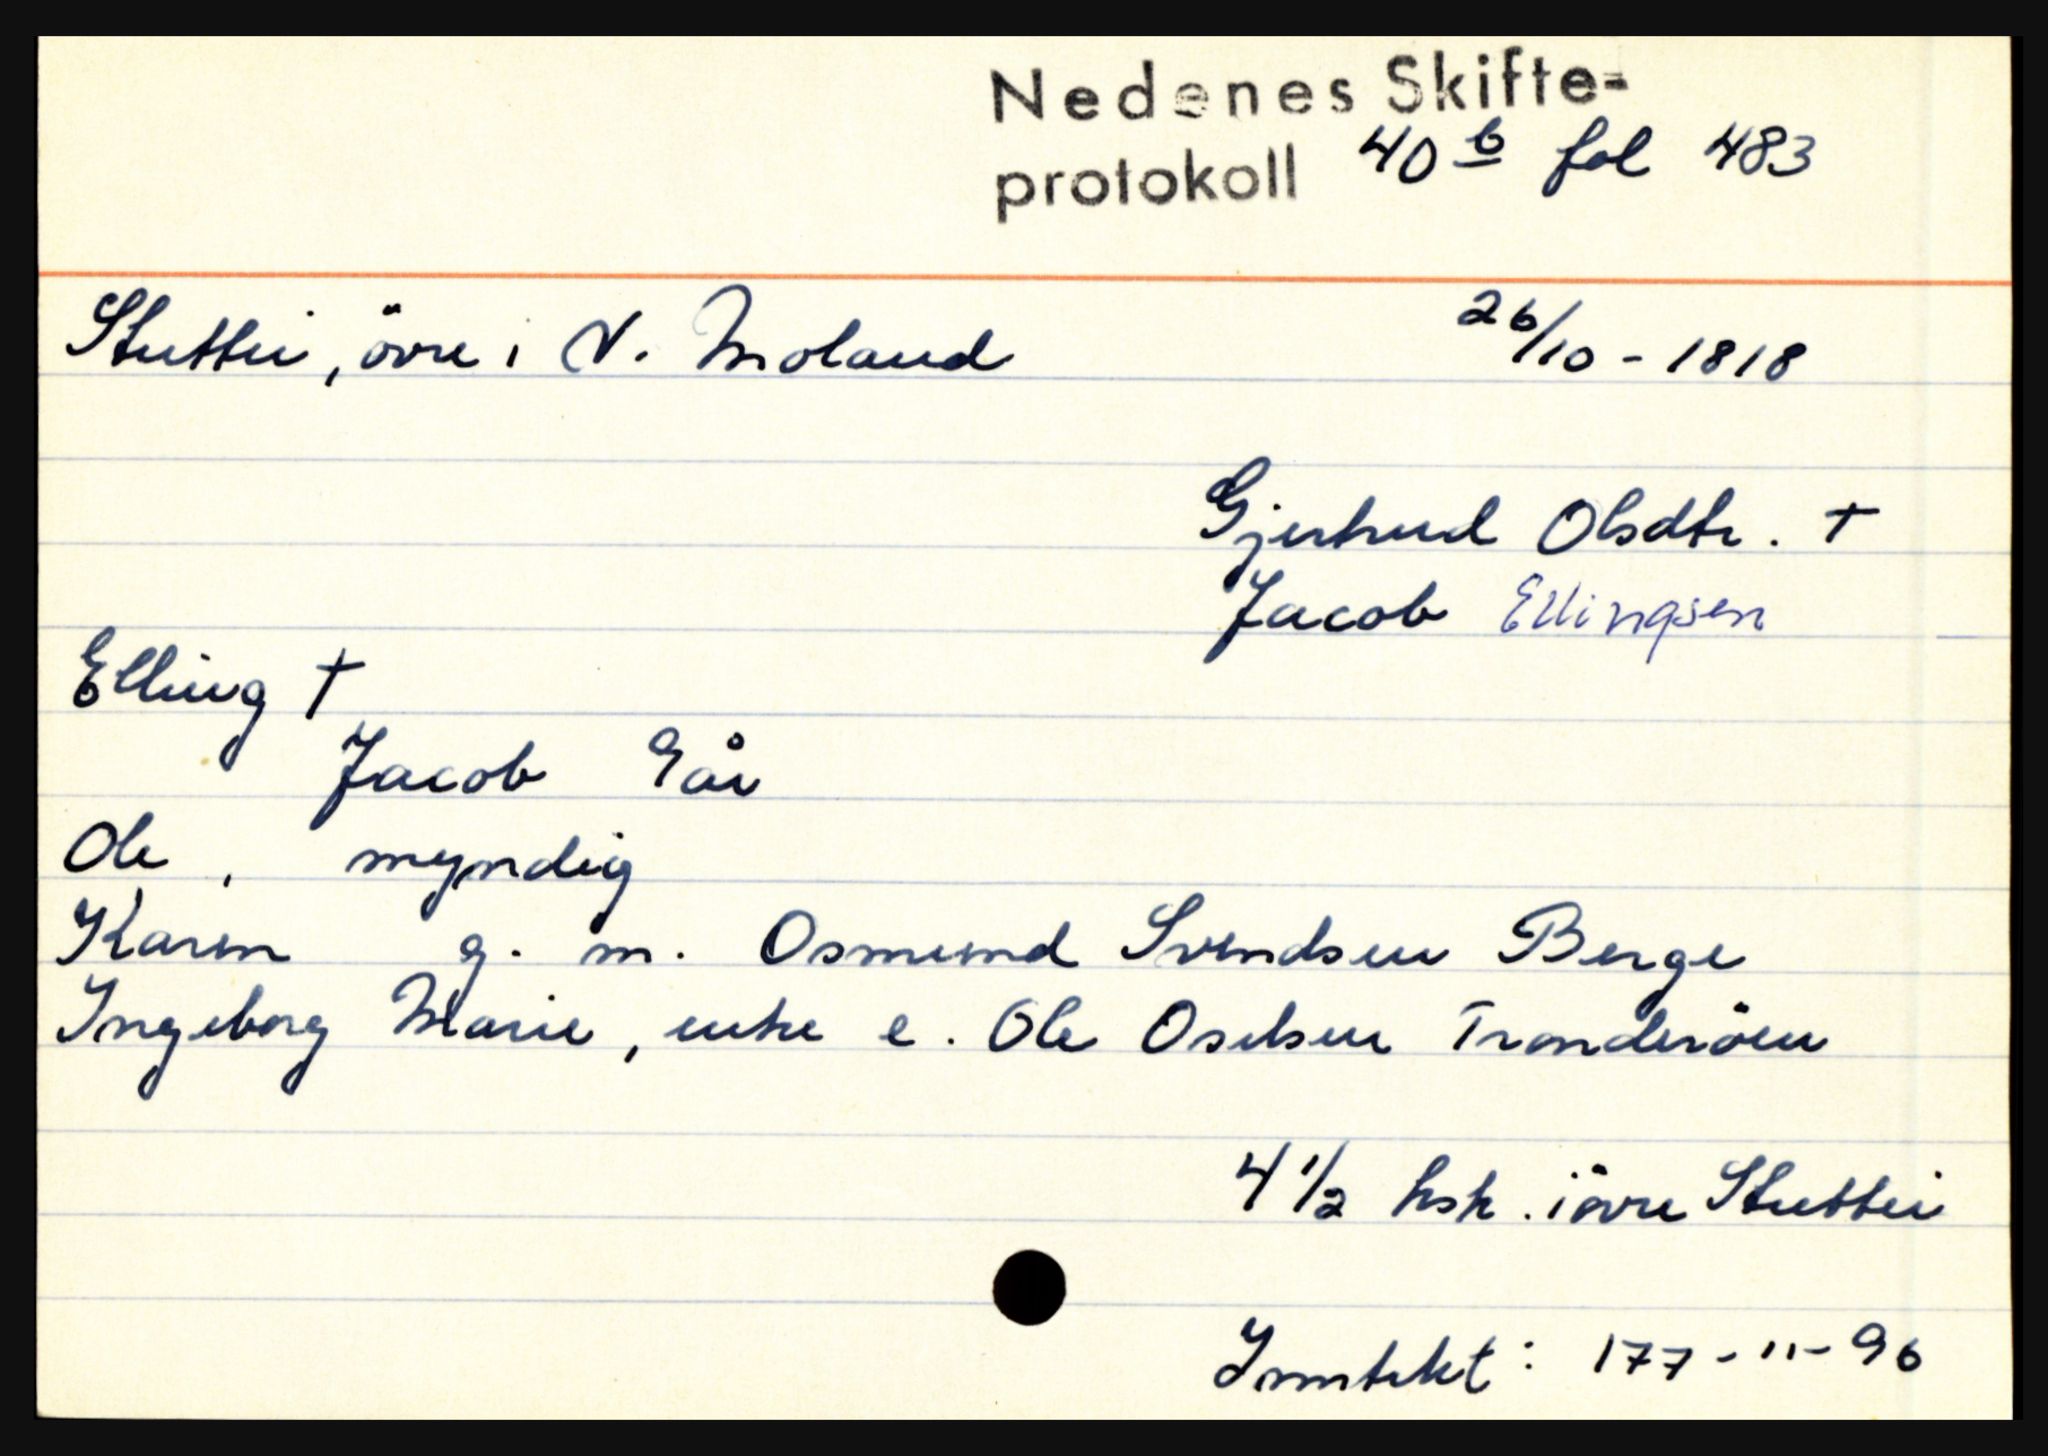 Nedenes Skifte-
protokoll 40 b fol 483
Stuttei, övre i V. Moland 26/10 - 1818
Gjertrud Olsdtr. †
Jacob Ellingsen
Elling †
Jacob 9 år
Ole , myndig
Karen g. m. Osmund Svendsen Berge
Ingeborg Marie, enke e. Ole Oselsen Tronderöen
4 1/2 hsk. i övre Stuttei
Inntekt: 177 - 11 - 96